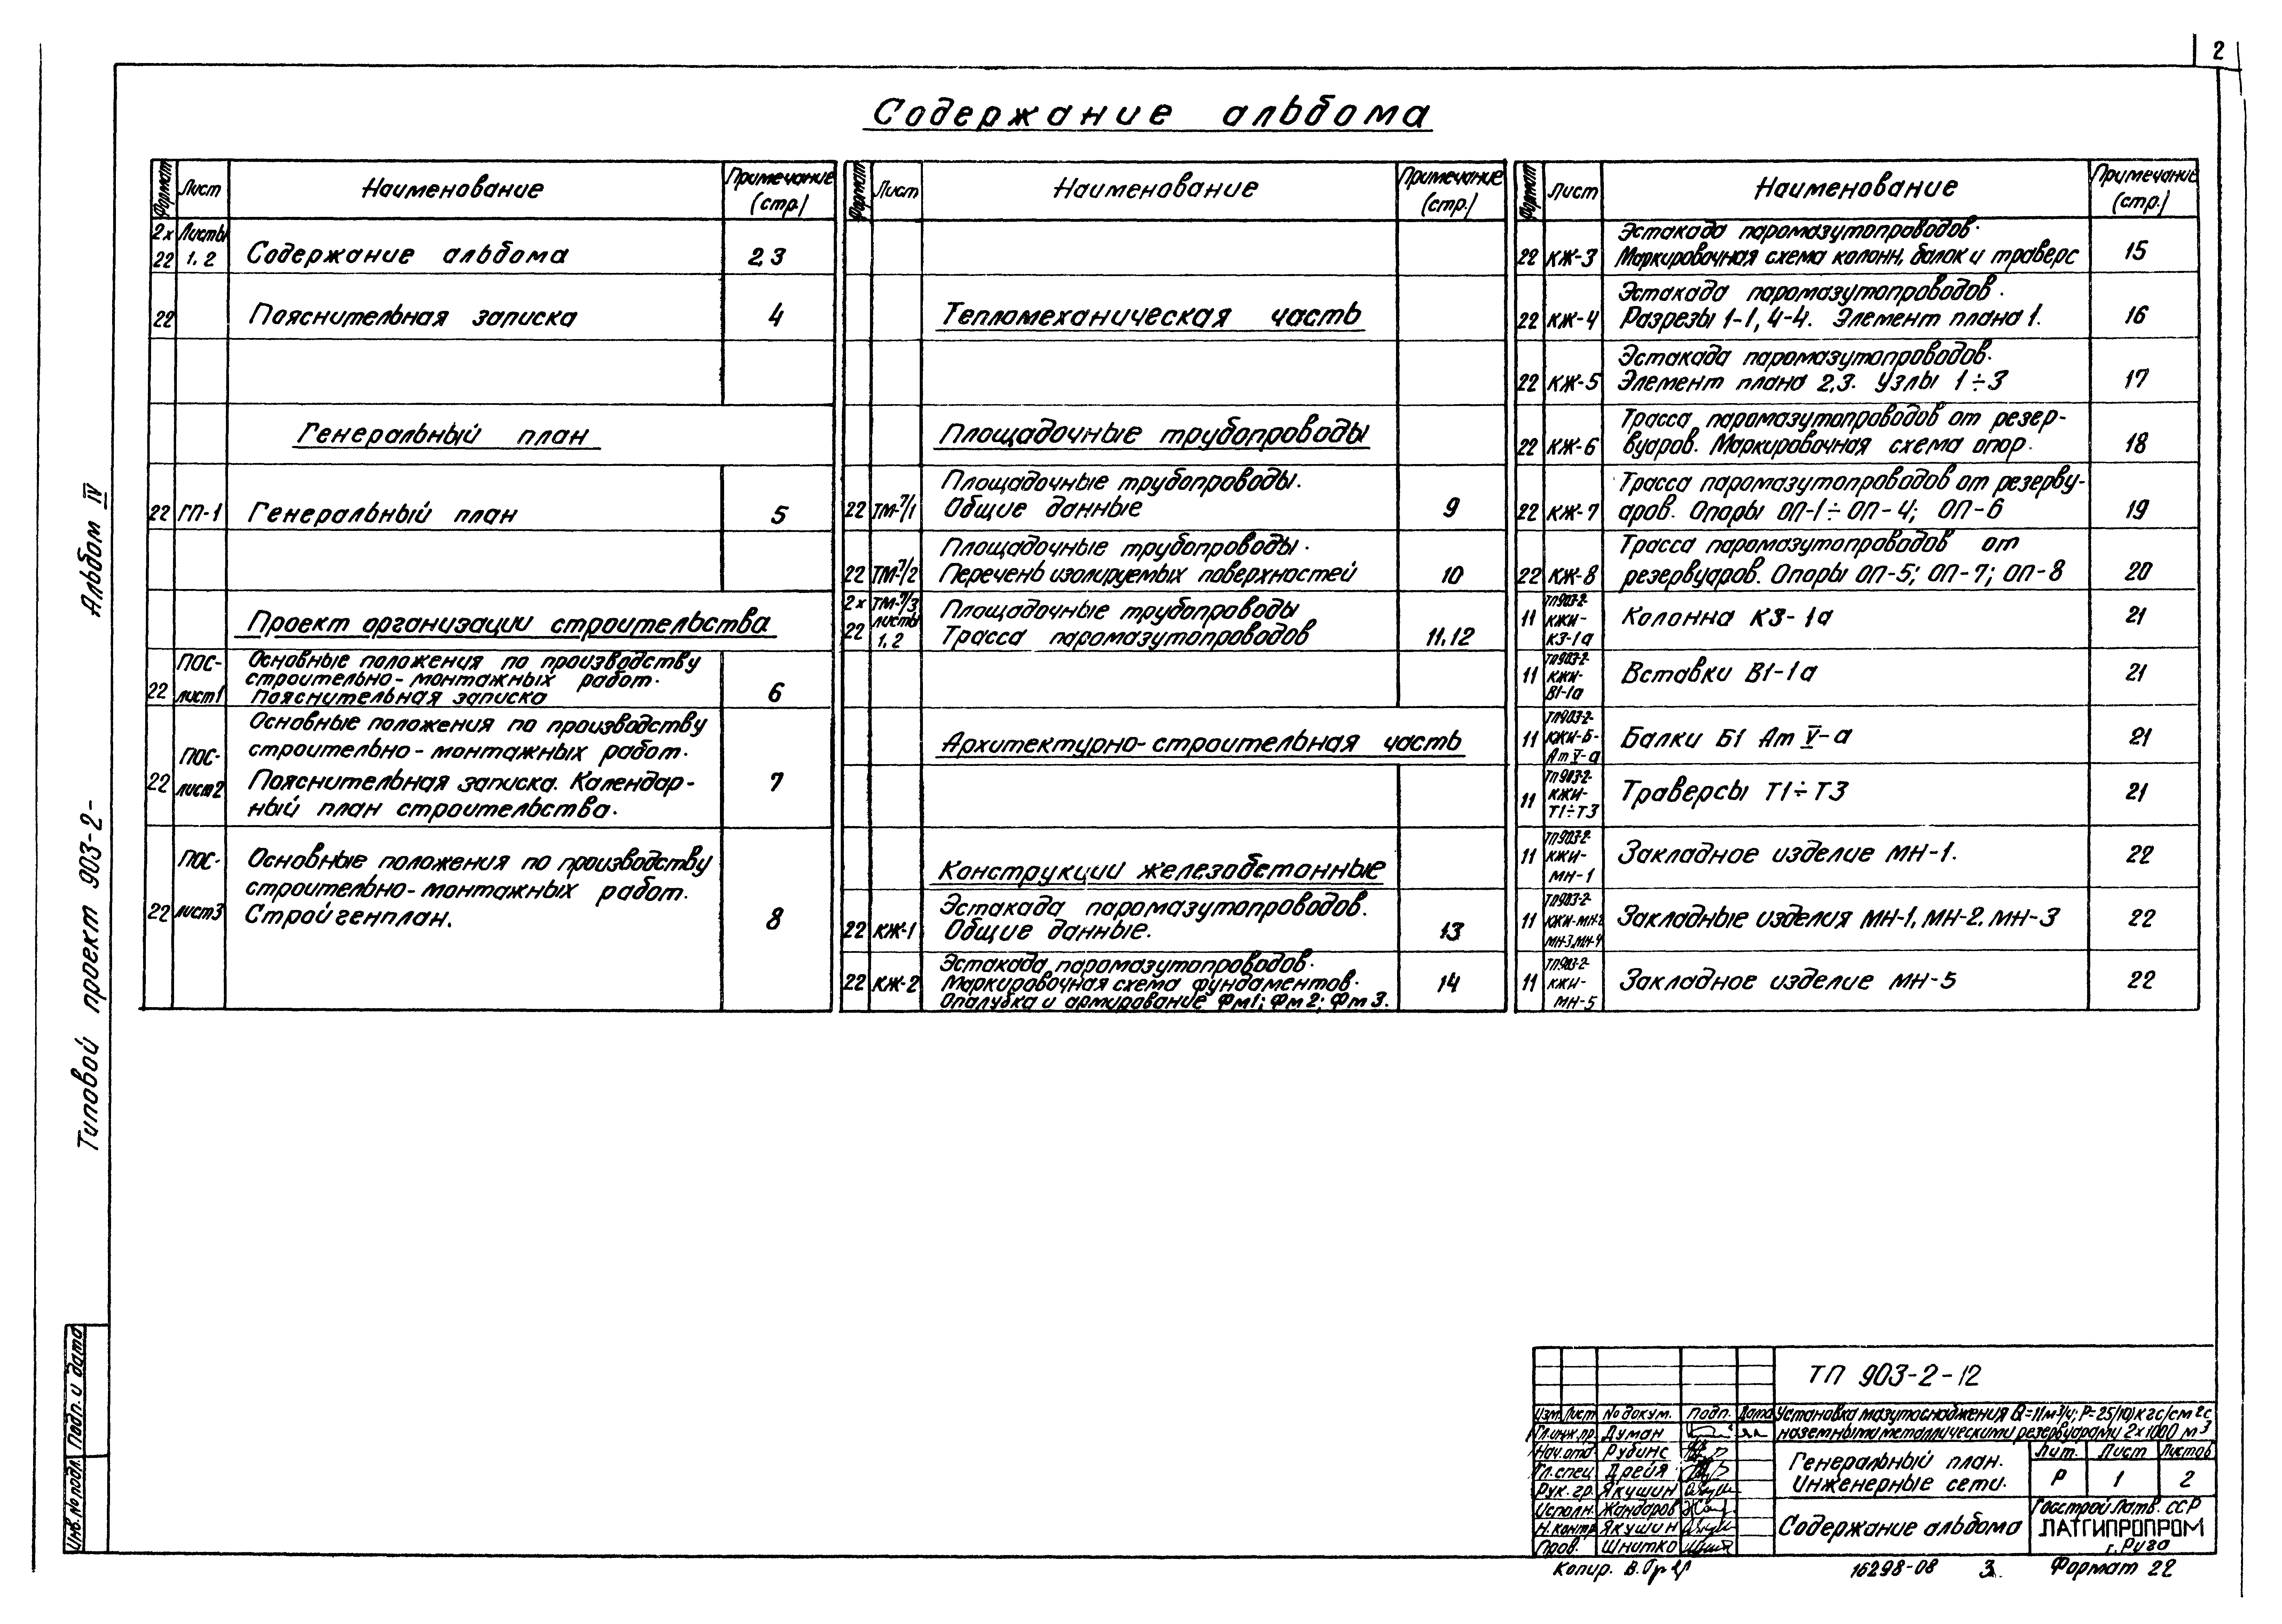 2
Содержание альбома
Формат Лист Наименование Примечание (стр.)
2х Листы
22 1, 2 Содержание альбома 2,3
22 Пояснительная записка 4
Генеральный план
22 ГП-1 Генеральный план 5
Проект организации строительства
ПОС- Основные положения по производству
строительно-монтажных работ.
22 лист1 Пояснительная записка 6
Основные положения по производству
строительно-монтажных работ.
ПОС-
22 лист2 Пояснительная записка. Календар- 7
ный план строительства.
ПОС- Основные положения по производству
строительно-монтажных работ.
22 лист3 Стройгенплан. 8
Формат Лист Наименование Примечание (стр.)
Тепломеханическая часть
Площадочные трубопроводы
Площадочные трубопроводы.
22 ТМ-7/1 Общие данные 9
Площадочные трубопроводы.
22 ТМ-7/2 Перечень изолируемых поверхностей 10
2х ТМ-7/3 Площадочные трубопроводы
листы
22 1, 2 Трасса паромазутопроводов 11,12
Архитектурно-строительная часть
Конструкции железобетонные
Эстакада паромазутопроводов.
22 КЖ-1 Общие данные. 13
Эстакада паромазутопроводов.
22 КЖ-2 Маркировочная схема фундаментов. 14
Опалубка и армирование Фм1; Фм2; Фм3.
Формат Лист Наименование Примечание (стр.)
Эстакада паромазутопроводов.
22 КЖ-3 Маркировочная схема колонн, балок и траверс 15
Эстакада паромазутопроводов.
22 КЖ-4 Разрезы 1-1, 4-4. Элемент плана 1. 16
Эстакада паромазутопроводов.
22 КЖ-5 Элемент плана 2,3. Узлы 1÷3 17
Трасса паромазутопроводов от резер-
22 КЖ-6 вуаров. Маркировочная схема опор. 18
Трасса паромазутопроводов от резерву-
22 КЖ-7 аров. Опоры ОП-1÷ОП-4; ОП-6 19
Трасса паромазутопроводов от
22 КЖ-8 резервуаров. Опоры ОП-5; ОП-7; ОП-8 20
ТП903-2-
11 КЖИ- Колонна К3-1а 21
К3-1а
ТП903-2-
11 КЖИ- Вставки В1-1а 21
В1-1а
ТП903-2-
11 КЖИ-Б- Балки Б1 Ат V-а 21
Ат V-а
ТП903-2-
11 КЖИ- Траверсы Т1÷Т3 21
Т1÷Т3
ТП903-2-
11 КЖИ- Закладное изделие МН-1. 22
МН-1
ТП903-2-
11 КЖИ-МН-2 Закладные изделия МН-1, МН-2, МН-3 22
МН-3,МН-4
ТП903-2-
11 КЖИ- Закладное изделие МН-5 22
МН-5
Типовой проект 903-2- Альбом IV
Инв.№подл. Подп. и дата
ТП 903-2-12
Изм. Лист № докум. Подп. Дата
Установка мазутоснабжения Q=11м³/ч; Р=25(10)кгс/см² с
наземными металлическими резервуарами 2х1000 м³
Гл.инж.пр Думан
Нач.отд Рубинс
Гл.спец Дрейя
Рук.гр. Якушин
Исполн. Жандаров
Н.контр Якушин
Пров. Шнитко
Генеральный план.
Инженерные сети.
Лит. Лист Листов
Р 1 2
Содержание альбома
Госстрой Латв. ССР
ЛАТГИПРОПРОМ
г. Рига
Копир. 16298-08 3 Формат 22